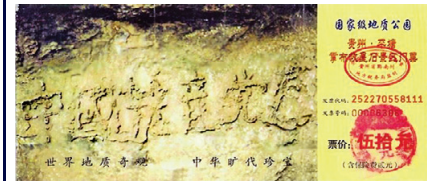 中国共產党亡
世界地质奇观 中华旷代珍宝
国家级地质公园
贵州·平塘
掌布藏字石景区门票
发票代码: 252270558111
发票号码:
票价: 伍拾元
(含保险费贰元)